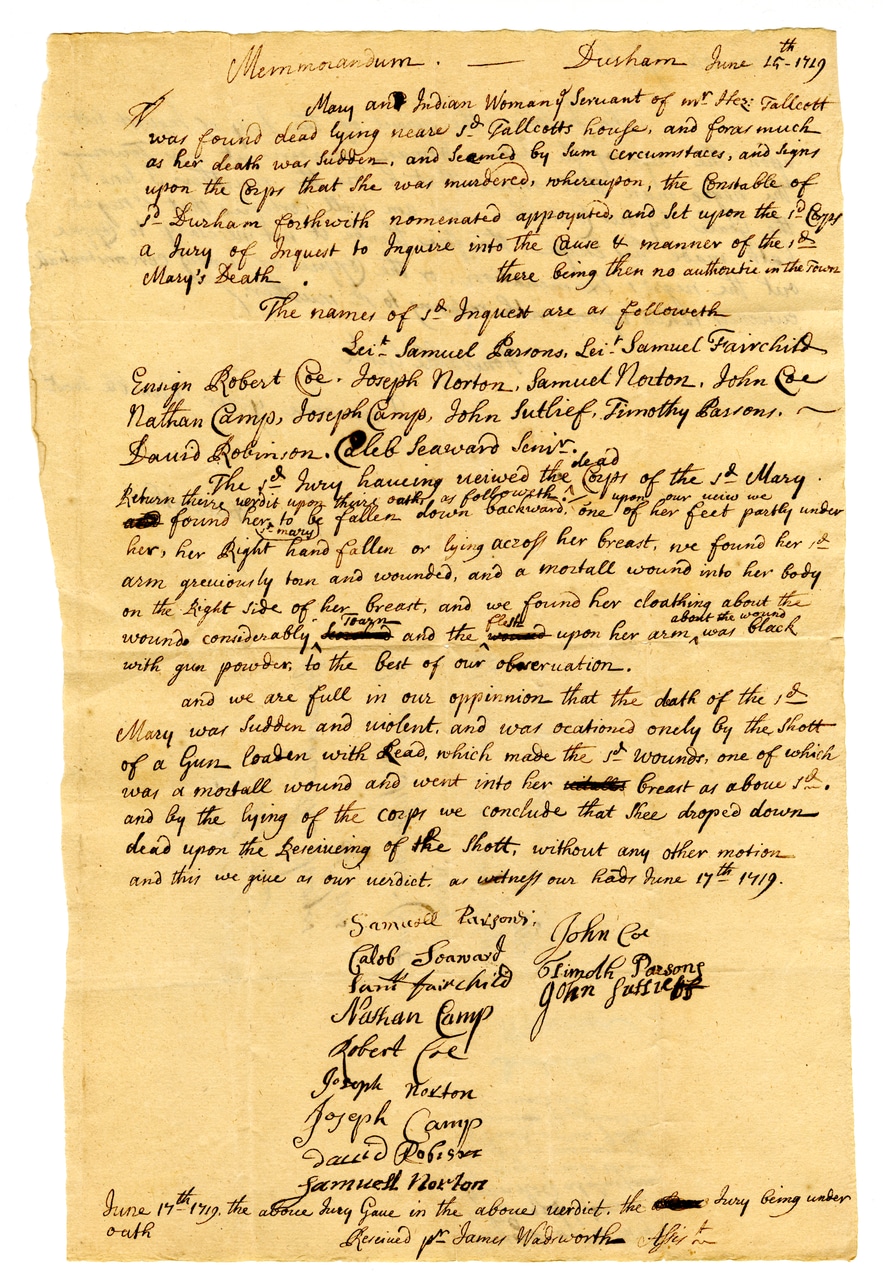 Memmorandum. — Durham June 15th - 1719
Mary an Indian Woman ye Servant of mr Hez: Tallcott
was found dead lying neare sd Tallcotts house, and foras much
as her death was Sudden, and Seamed by Sum cercumstaces, and Signs
upon the Corps that She was murdered, whereupon, the Constable of
sd Durham forthwith nomenated appoynted, and Set upon the sd Corps
a Jury of Inquest to Inquire into the Cause & manner of the sd
Mary's Death . there being then no authoritie in the Town
The names of sd Inquest are as followeth
Leit Samuel Parsons, Leit Samuel Fairchild
Ensign Robert Coe. Joseph Norton, Samuel Norton, John Coe
Nathan Camp, Joseph Camp, John Sutlief, Timothy Parsons. —
David Robinson. Caleb Seaward Senir.
dead
The sd Jury haveing veiwed the ^ Corps of the sd Mary.
Return theire verdit upon theire oaths as followeth. upon our veiw we
found her, to be fallen down backward, one of her feet partly under
sd mary
her, her Right hand fallen or lying across her breast, we found her sd
arm greviously torn and wounded, and a mortall wound into her body
on the Right side of her breast, and we found her cloathing about the
Toarn flesh about the wound
wounds considerably ^ and the upon her arm ^ was black
with gun powder, to the best of our observation.
and we are full in our oppinnion that the death of the sd
Mary was Sudden and violent, and was ocationed onely by the Shott
of a Gun loaden with Lead, which made the sd wounds, one of which
was a mortall wound and went into her vitalls breast as above sd.
and by the lying of the corps we conclude that Shee droped down
dead upon the Reseiveing of the Shott, without any other motion
and this we give as our verdict. as witness our hads June 17th 1719.
Samuell Parsons;
John Coe
Caleb Seaward
Timoth Parsons
Samll fairchild
John Sutlieff
Nathan Camp
Robert Coe
Joseph Norton
Joseph Camp
david Robison
Samuell Norton
June 17th 1719. the above Jury Gave in the above verdict. the Jury being under
oath
Reseived pr James Wadsworth Assist